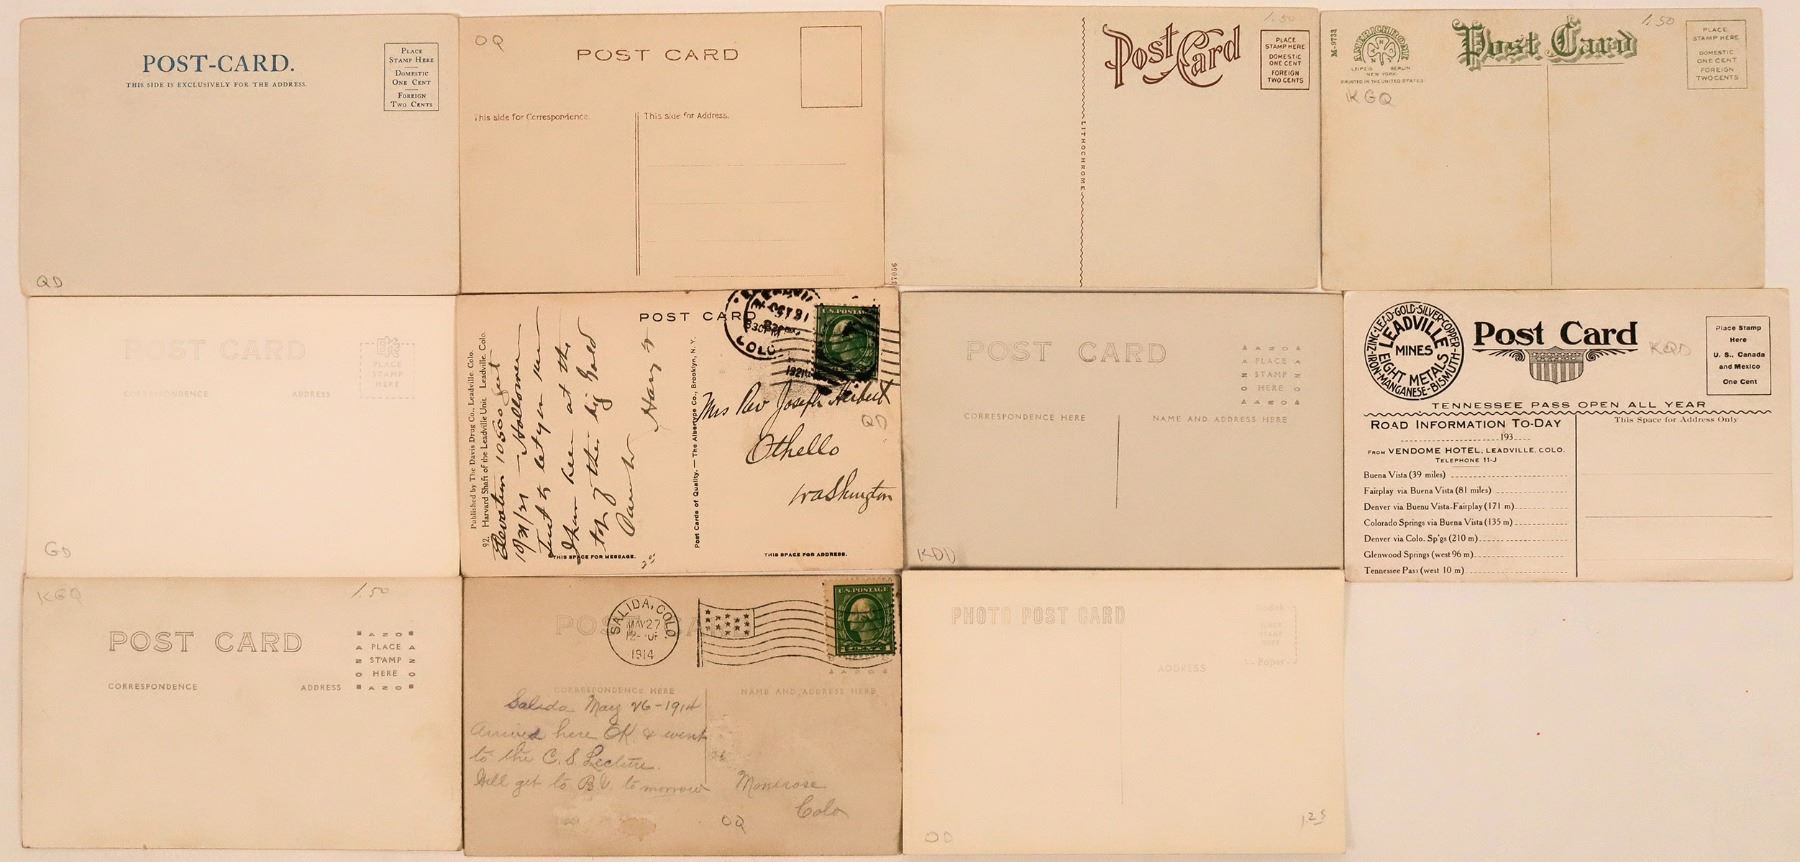 POST-CARD.
THIS SIDE IS EXCLUSIVELY FOR THE ADDRESS.
PLACE
STAMP HERE
DOMESTIC
ONE CENT
FOREIGN
TWO CENTS
QD
OQ
POST CARD
This side for Correspondence.
This side for Address.
1.50
Post Card
PLACE
STAMP HERE
DOMESTIC
ONE CENT
FOREIGN
TWO CENTS
LITHOCHROME
M-9733
AMERICHROME
LEIPZIG BERLIN
NEW YORK
PRINTED IN THE UNITED STATES
KGQ
Post Card
1.50
PLACE
STAMP HERE
DOMESTIC
ONE CENT
FOREIGN
TWO CENTS
POST CARD
EKC
PLACE
STAMP
HERE
CORRESPONDENCE
ADDRESS
GD
POST CARD
OCT 31
830PM
1921
COLO.
U.S. POSTAGE
Published by The Davis Drug Co., Leadville. Colo.
92. Harvard Shaft of the Leadville Unit. Leadville. Colo.
Elevation 10500 feet
10/31/21 - Halloween
Just to let you know
I have been at the
top of the big Gold
Post Cards of Quality. — The Albertype Co., Brooklyn, N.Y.
Mrs Rev Joseph Herbert
QD
Othello
Washington
THIS SPACE FOR MESSAGE.
THIS SPACE FOR ADDRESS.
POST CARD
AZO
PLACE
STAMP
HERE
AZO
CORRESPONDENCE HERE
NAME AND ADDRESS HERE
KDD
IRON-ZINC-LEAD-GOLD-SILVER-COPPER
LEADVILLE
MINES
EIGHT METALS
MANGANESE-BISMUTH
Post Card
KQD
Place Stamp
Here
U. S., Canada
and Mexico
One Cent
TENNESSEE PASS OPEN ALL YEAR
ROAD INFORMATION TO-DAY
193
This Space for Address Only
FROM VENDOME HOTEL, LEADVILLE, COLO.
TELEPHONE 11-J
Buena Vista (39 miles)
Fairplay via Buena Vista (81 miles)
Denver via Buenu Vista-Fairplay (171 m)
Colorado Springs via Buena Vista (135 m)
Denver via Colo. Sp'gs (210 m)
Glenwood Springs (west 96 m)
Tennessee Pass (west 10 m)
KGQ
1.50
POST CARD
AZO
PLACE
STAMP
HERE
AZO
CORRESPONDENCE
ADDRESS
POST CARD
SALIDA, COLO.
MAY 27
1914
U.S. POSTAGE
CORRESPONDENCE HERE
NAME AND ADDRESS HERE
Salida May 26-1914
Arrived here OK & went
to the C. S. Lecture.
Will get to B.V. tomorrow
Montrose
Colo
OQ
PHOTO POST CARD
Kodak
PLACE
STAMP
HERE
Paper
ADDRESS
OD
1.25